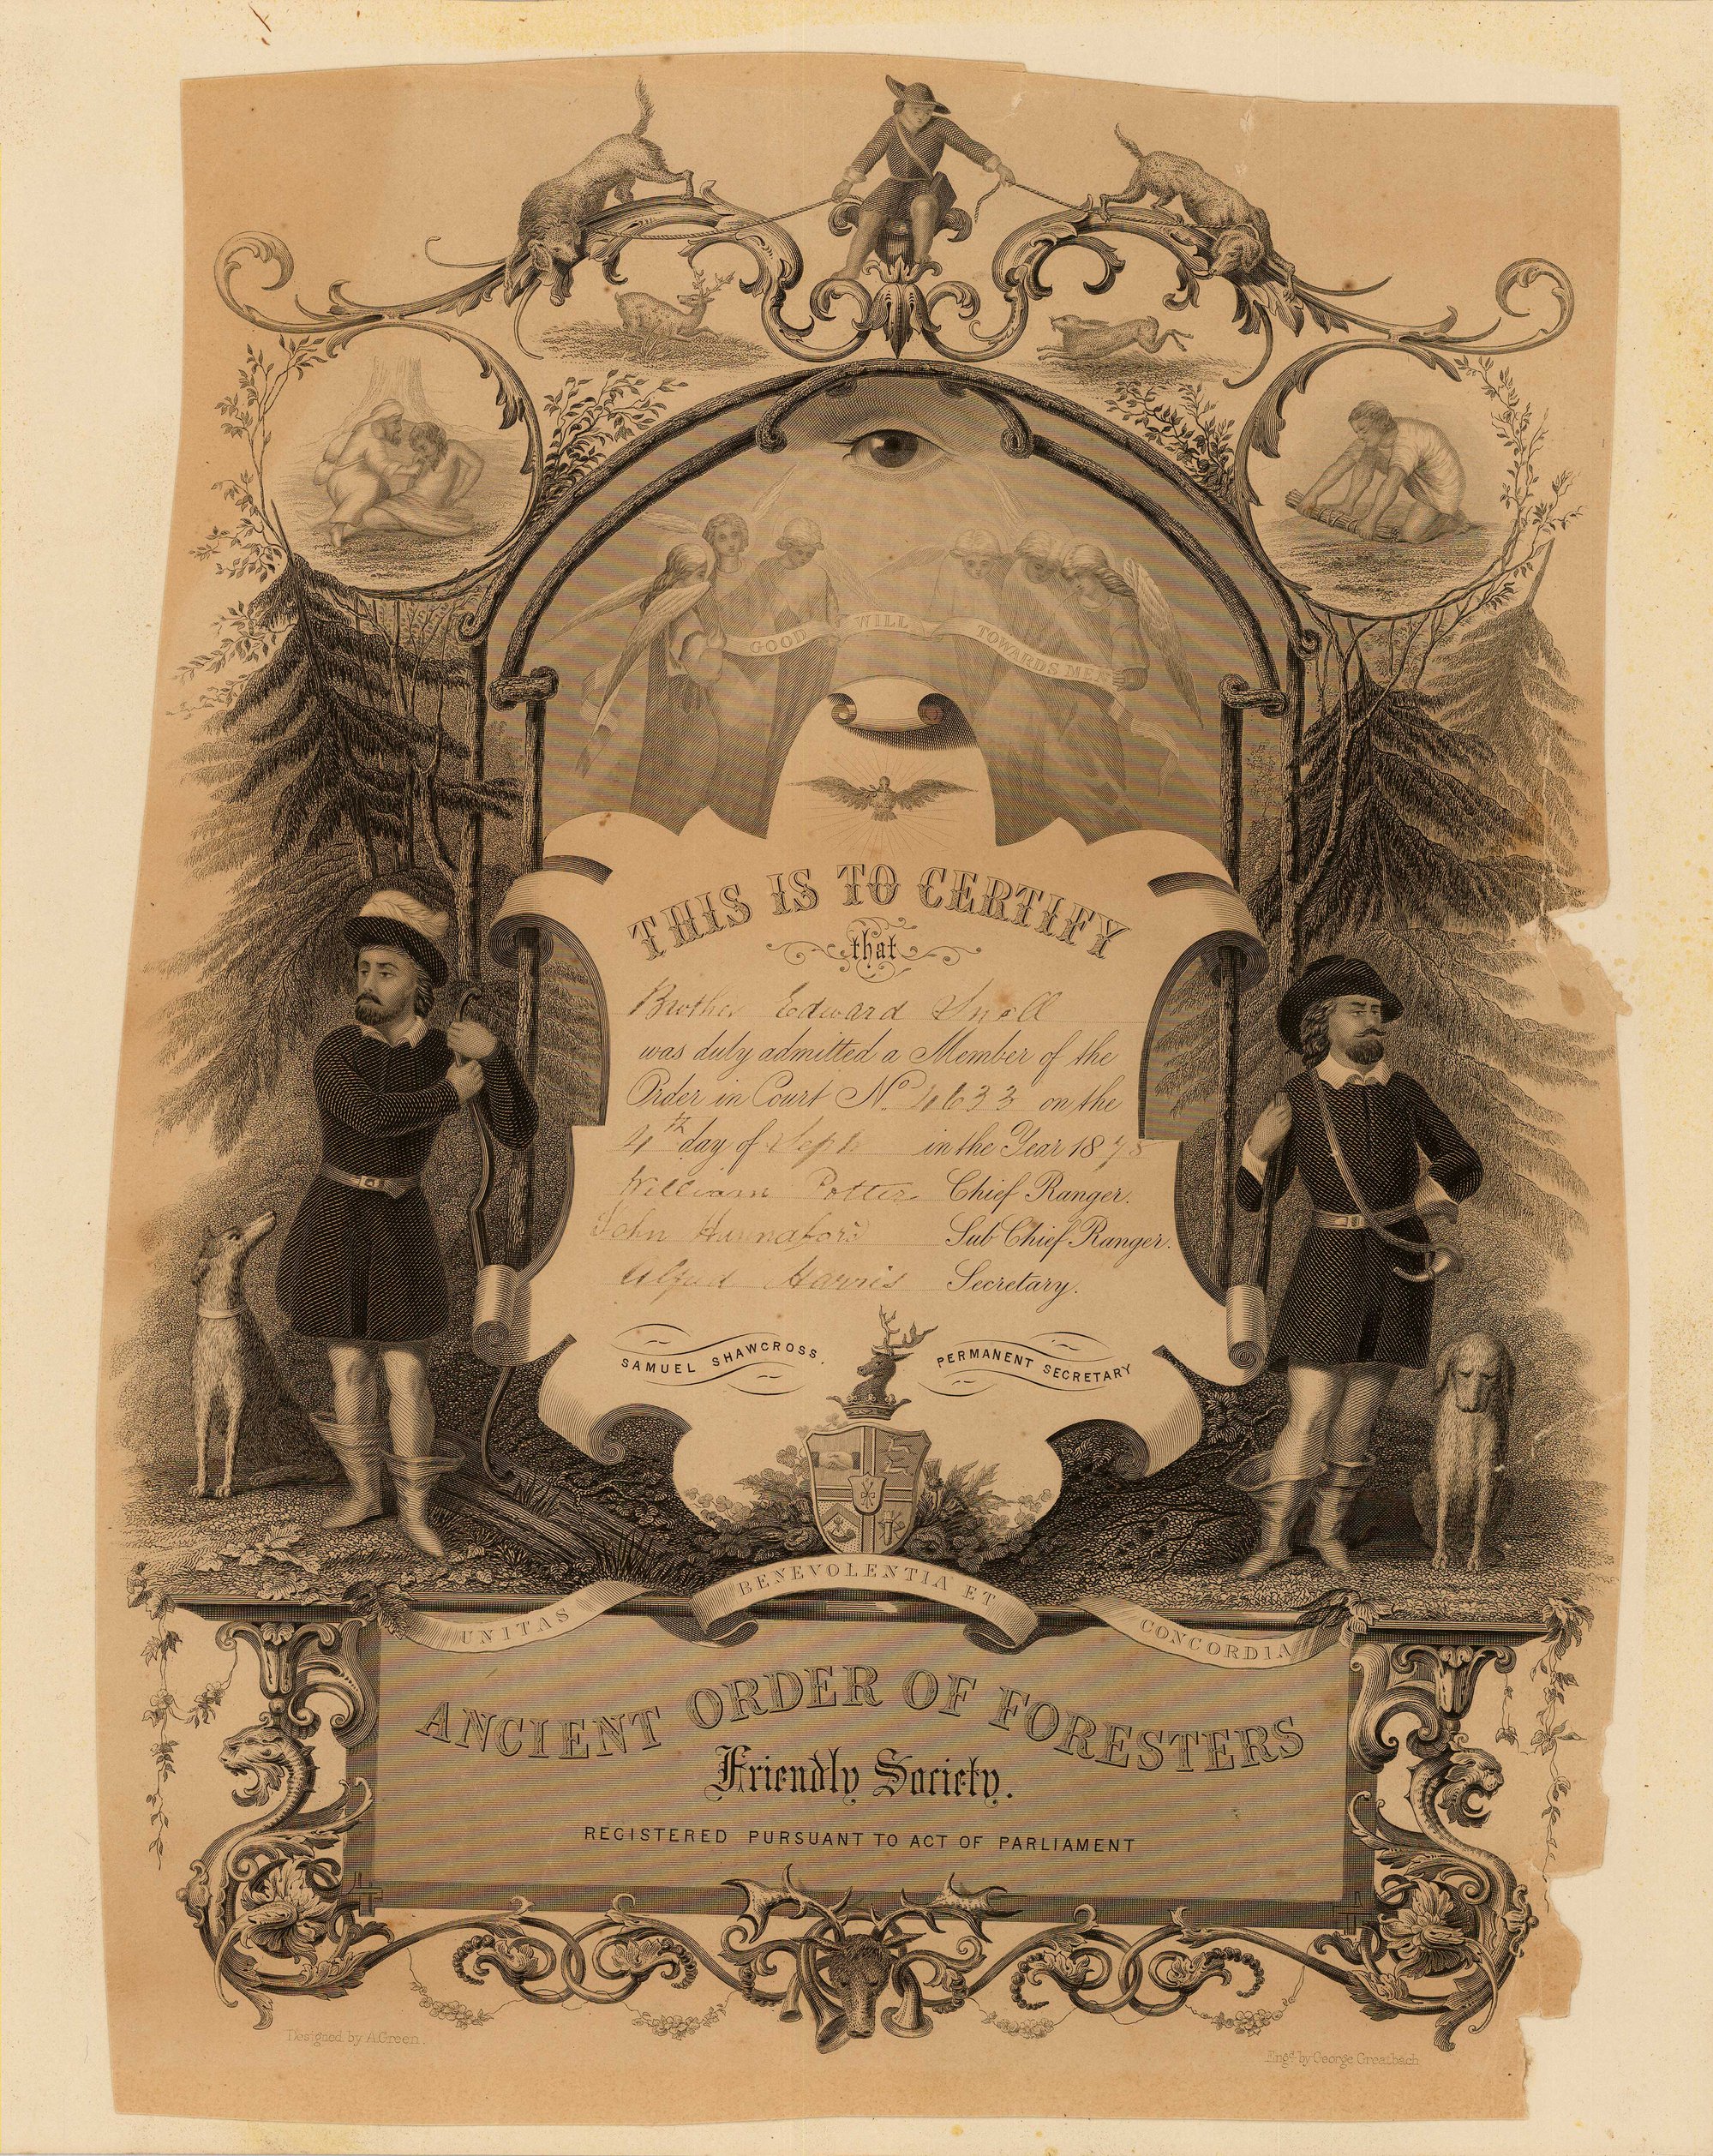 GOOD WILL TOWARDS MEN
THIS IS TO CERTIFY
that
Brother Edward Snell
was duly admitted a Member of the
Order in Court No. 4633 on the
4th day of Sept in the Year 1878
William Potter Chief Ranger.
John Hannaford Sub Chief Ranger.
Alfred Harris Secretary.
SAMUEL SHAWCROSS, PERMANENT SECRETARY
UNITAS BENEVOLENTIA ET CONCORDIA
ANCIENT ORDER OF FORESTERS
Friendly Society.
REGISTERED PURSUANT TO ACT OF PARLIAMENT
Designed by A. Green.
Engd. by George Greatbach